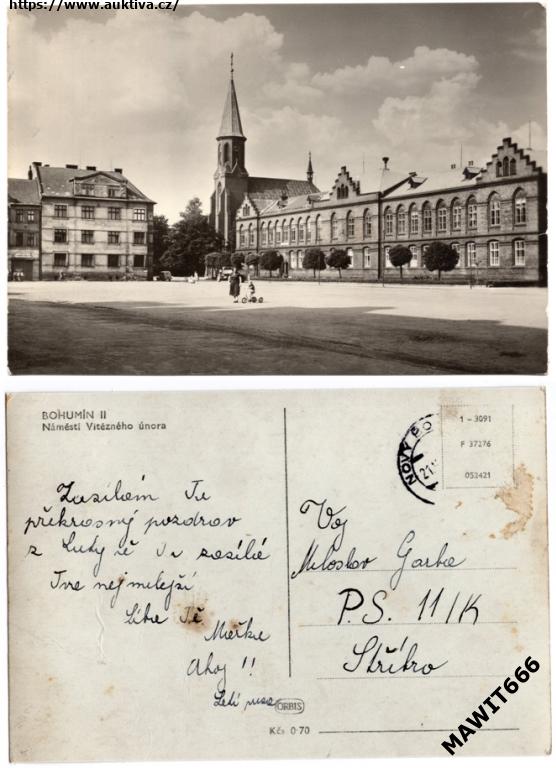 https://www.auktiva.cz/
BOHUMÍN II
Náměstí Vítězného února
NOVÝ BO
21.
1 – 3091
F 37276
053421
Zasílám Ti
překrásný pozdrav
z
zasílá
Tvé nejmilejší
Líbá Tě
Ahoj!!
Letí pusa
Voj
Miloslav Garba
P.S. 11/K
Stříbro
ORBIS
Kčs 0·70
MAWIT666